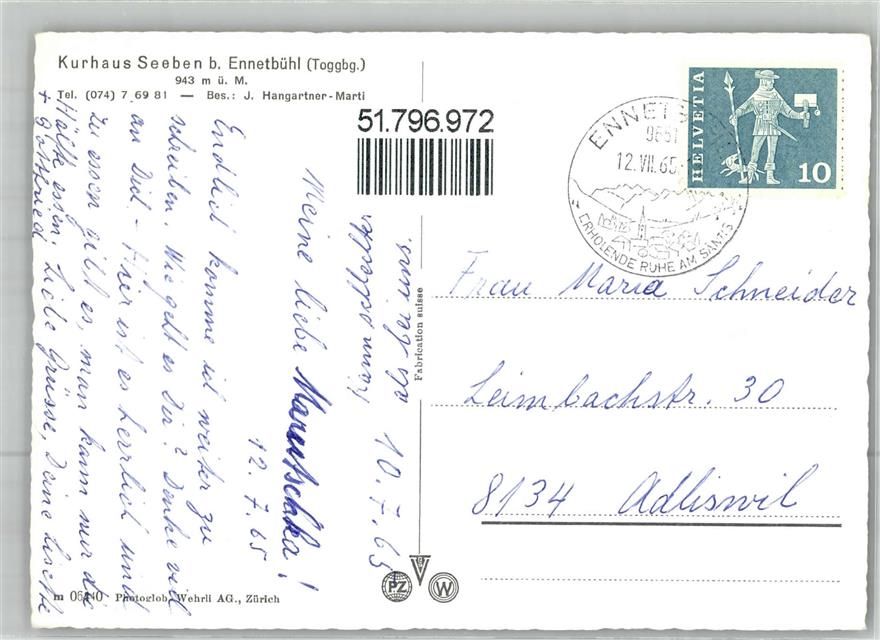 Kurhaus Seeben b. Ennetbühl (Toggbg.)
943 m ü. M.
Tel. (074) 7 69 81 — Bes.: J. Hangartner-Marti
51.796.972
HELVETIA
10
ENNET
9651
12.VII.65
ERHOLENDE RUHE AM SÄNTIS
10.7.65
Meine liebe Marutschka!
12.7.65
Endlich komme ich weiter zu
schreiben. Wie geht es Dir? Denke viel
an Dich - Hier ist es herrlich und
zu essen gibt es, man kann nur die
Hälfte essen. Liebe Grüsse, Deine Lisette
+ Gottfried
Frau Maria Schneider
Leimbachstr. 30
8134 Adliswil
Fabrication suisse
PZ
W
Photoglob-Wehrli AG., Zürich